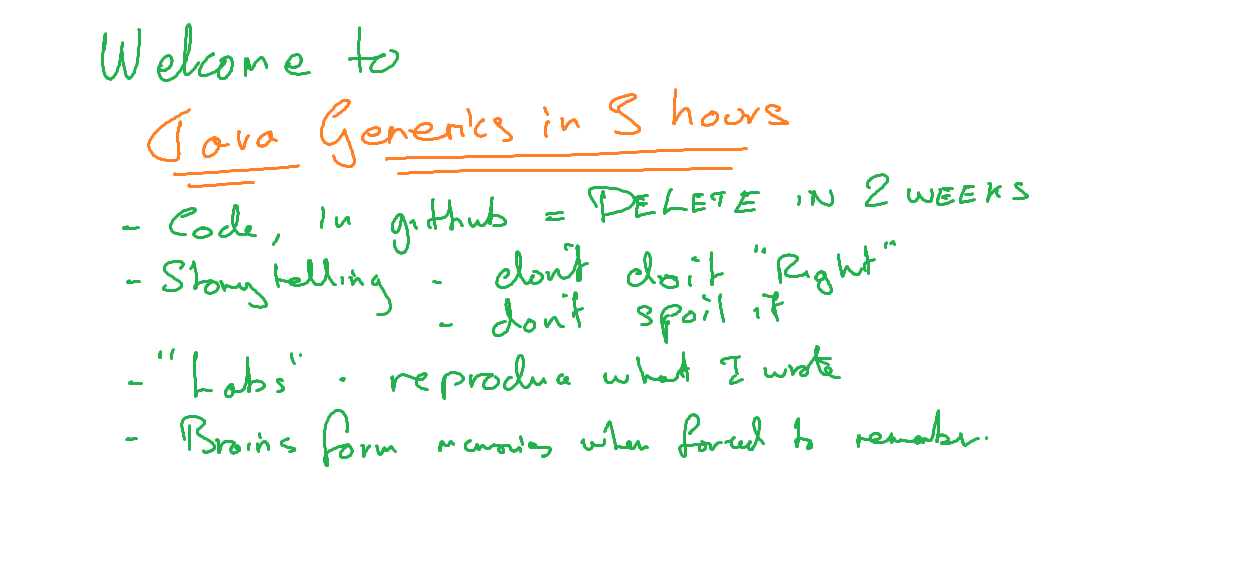 Welcome to
Java Generics in 3 hours
- Code, in github = DELETE IN 2 WEEKS
- Storytelling - don't do it "Right"
- don't spoil it
- "Labs" - reproduce what I wrote
- Brains form memories when forced to remember.